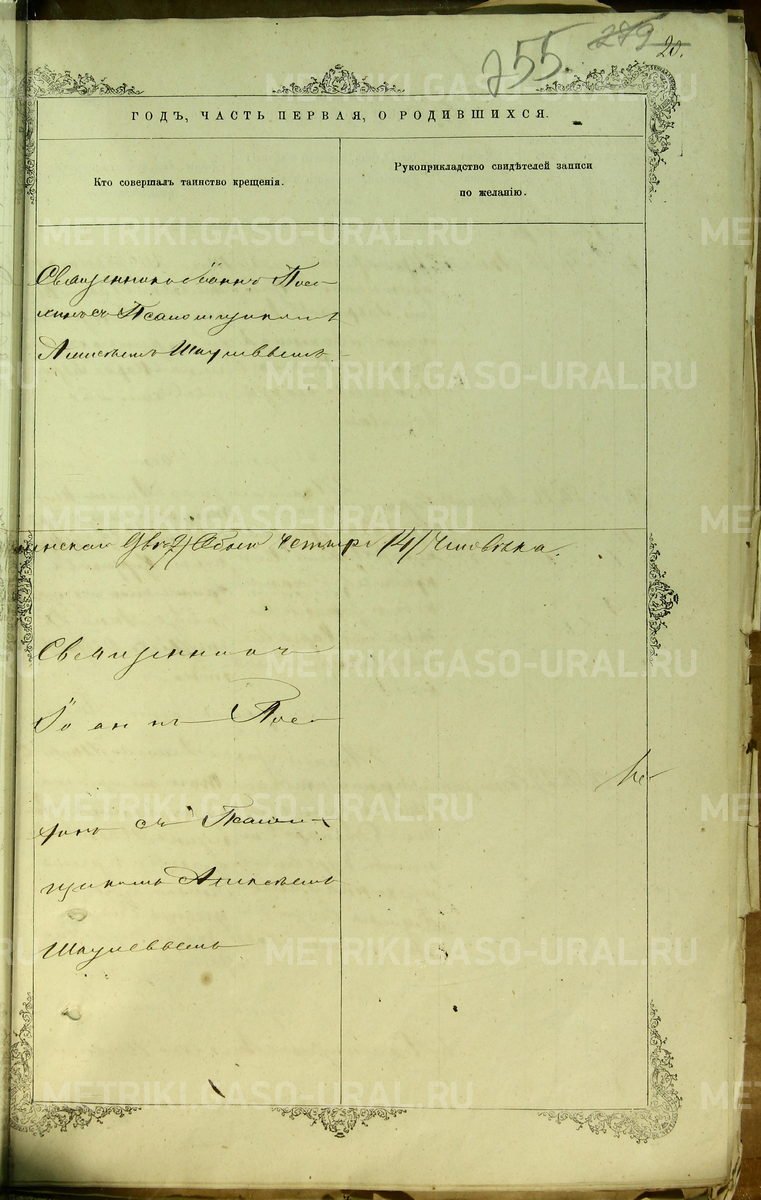 755. 279 20.
ГОДЪ, ЧАСТЬ ПЕРВАЯ, О РОДИВШИХСЯ.
Кто совершалъ таинство крещенія.
Рукоприкладство свидѣтелей записи
по желанію.
Священникъ Іоаннъ Пос-
съ Псаломщикомъ
Алексѣемъ Шаулевъемъ
женскаго двѣ 2/ Обоего четыре /4/ человѣка.
Священникъ
Іоаннъ Пос-
съ Псалом-
щикомъ Алексѣемъ
Шаулевъемъ
METRIKI.GASO-URAL.RU